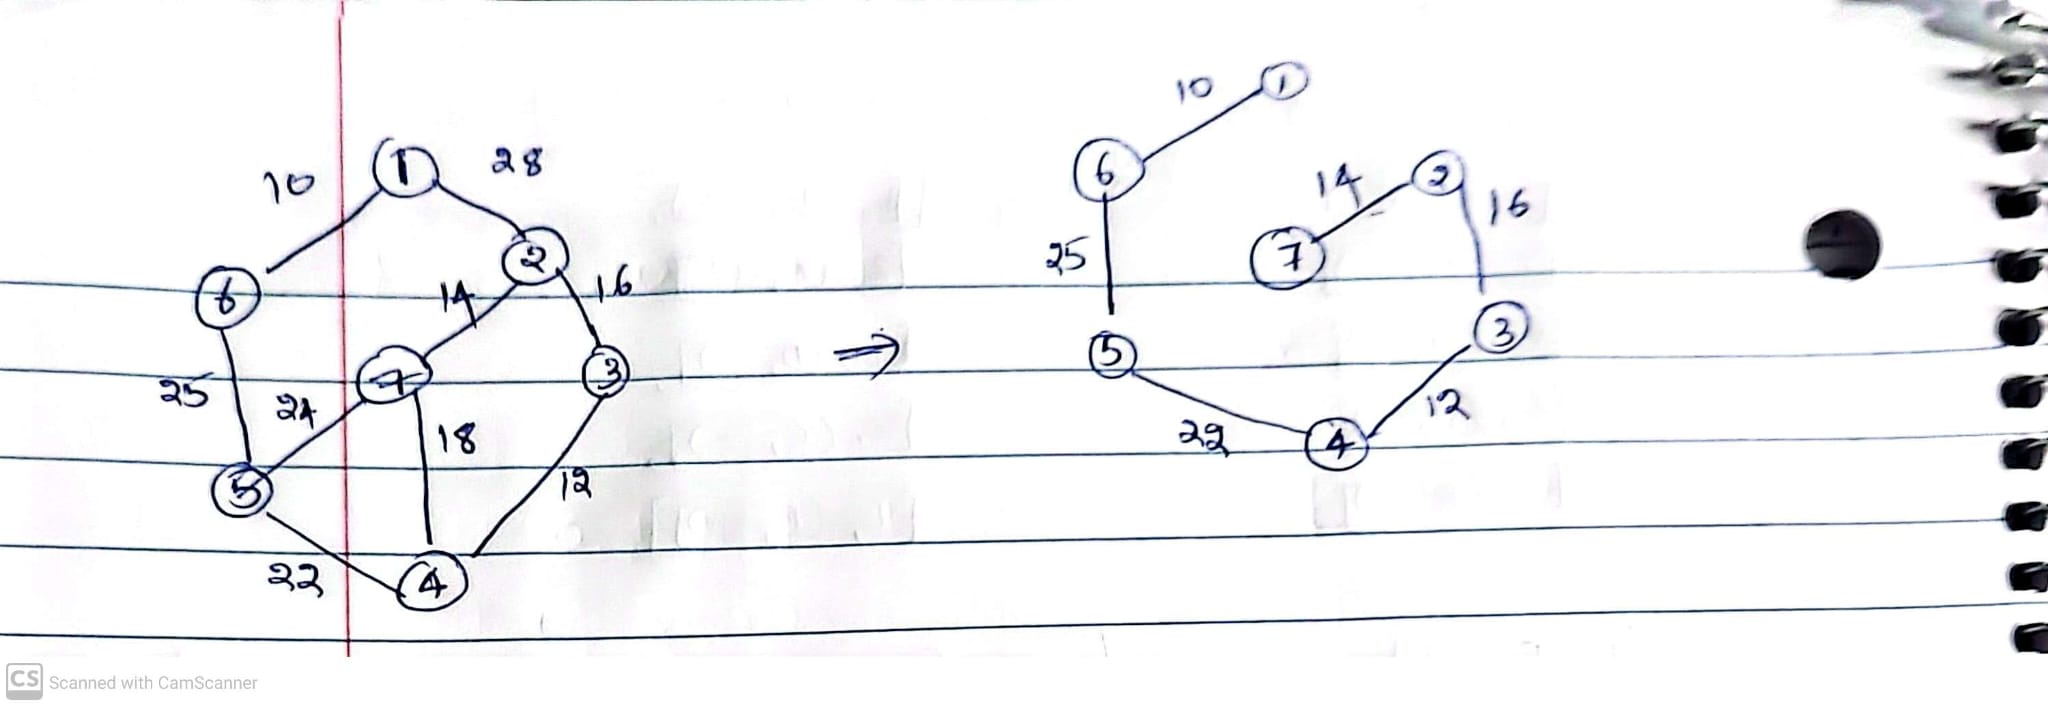 10 1 28
6 14 2 16
25 24 7 18 3
5 12
22 4
⇒
10 1
6 14 2 16
25 7
5 3
22 4 12
CS Scanned with CamScanner